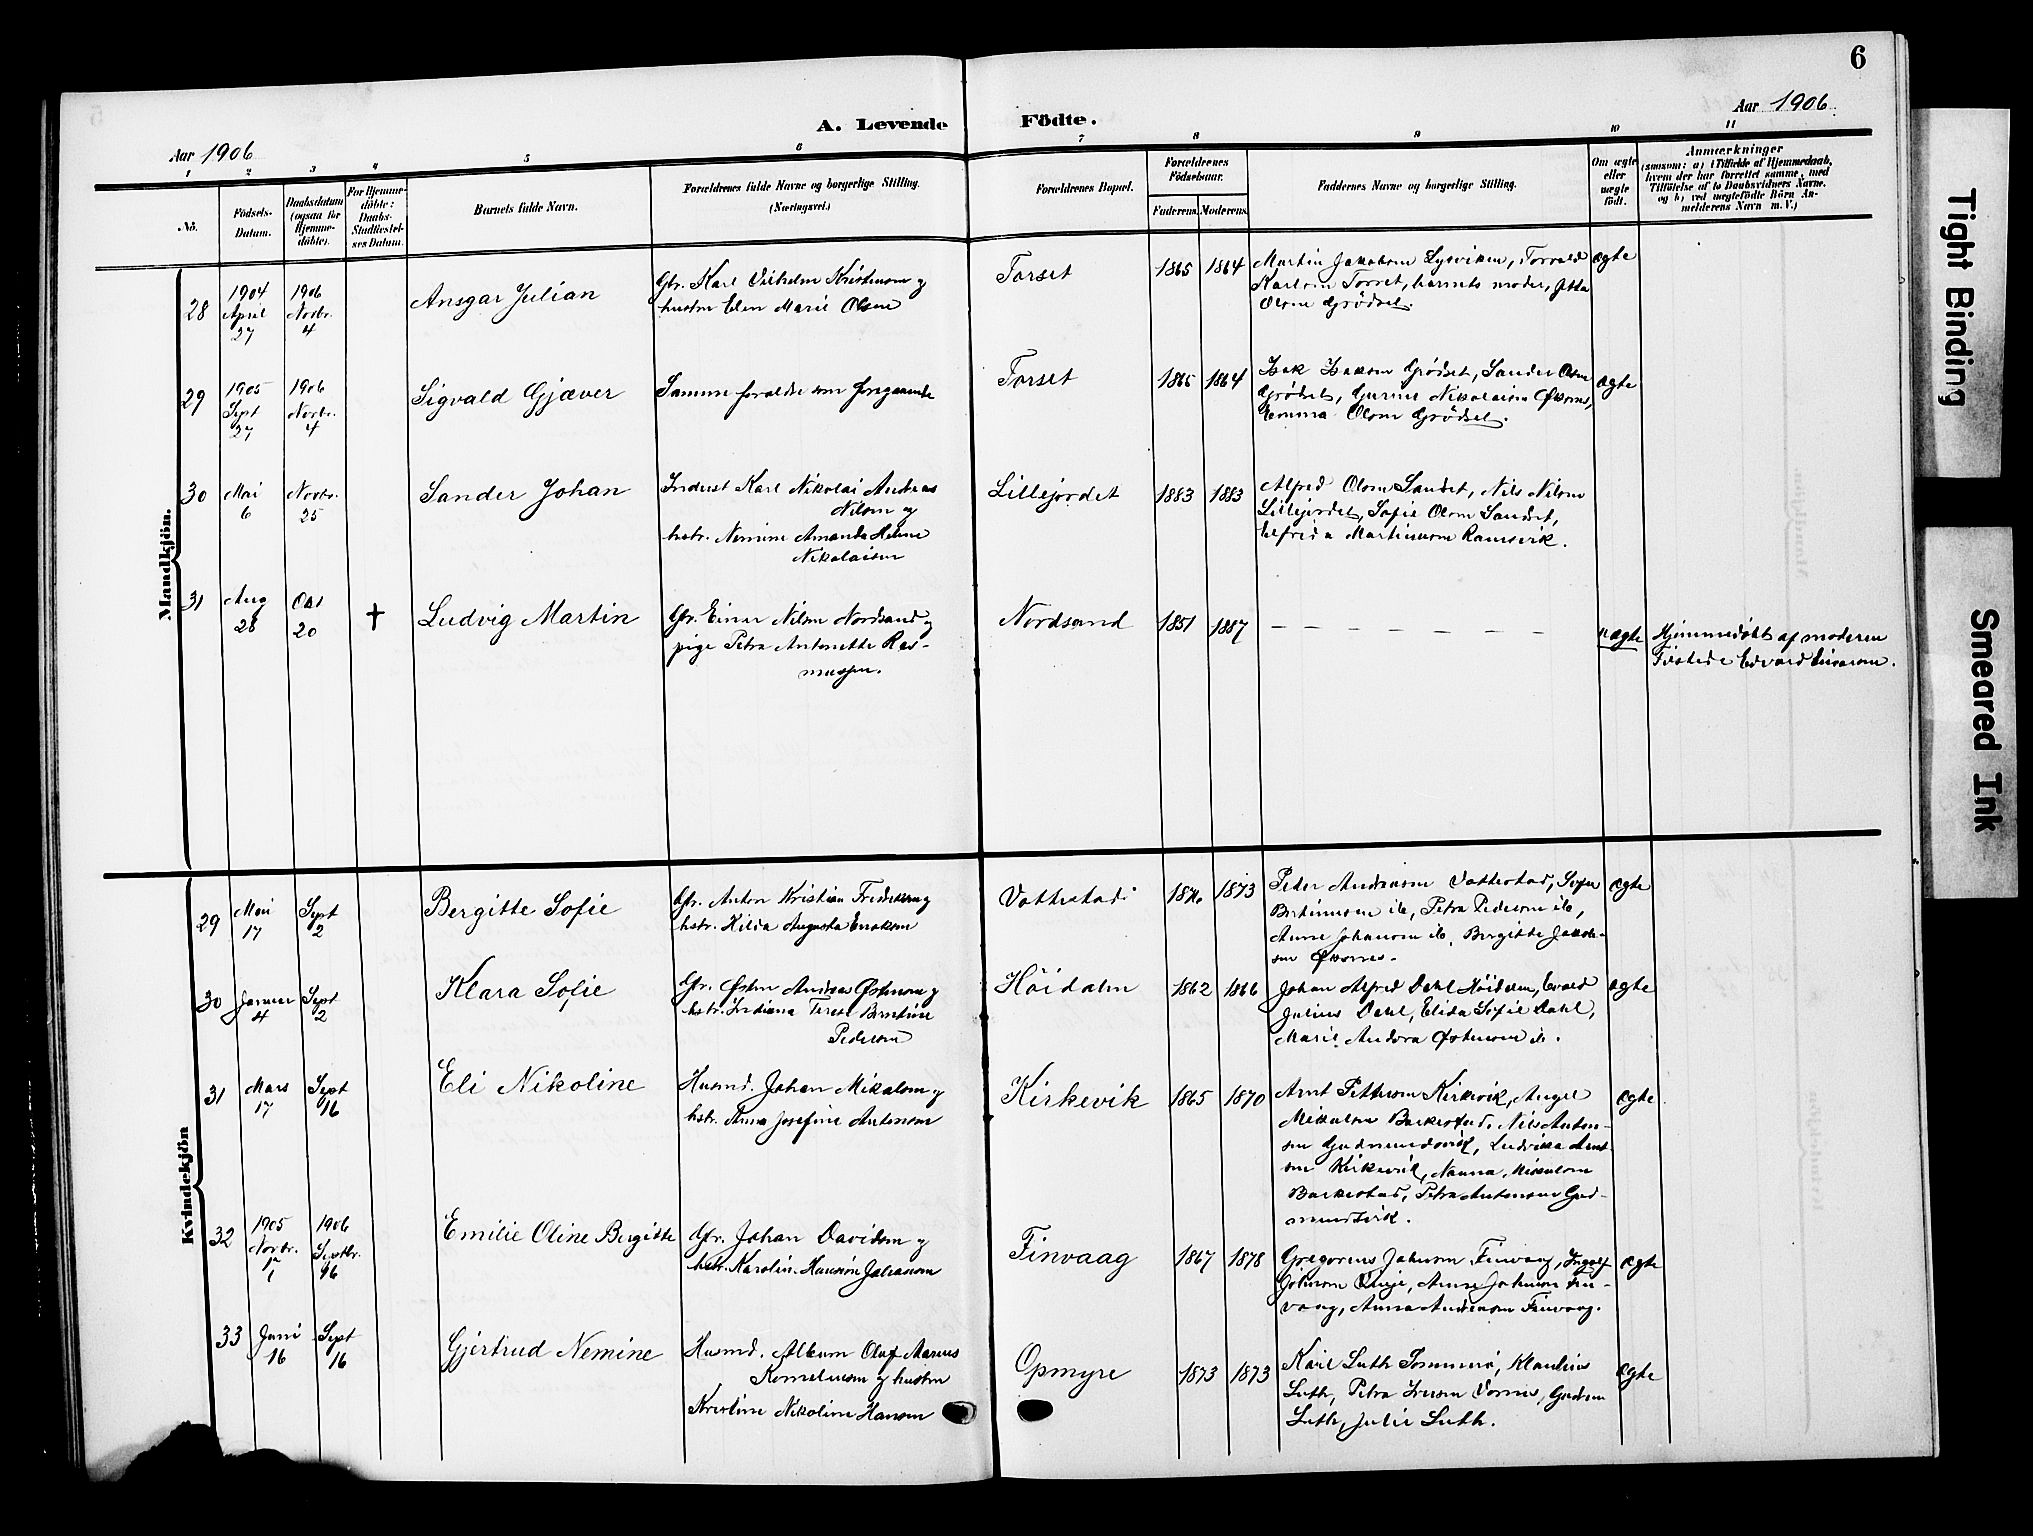 6
Aar 1906
A. Levende Födte.
Aar 1906
1 2 3 4 5 6 7 8 9 10 11
No.
Födsels-Datum.
Daabsdatum (ogsaa for Hjemmedöbte).
For Hjemmedöbte: Daabs-Stadfæstelses Datum.
Barnets fulde Navn.
Forældrenes fulde Navne og borgerlige Stilling.
(Næringsvei.)
Forældrenes Bopæl.
Forældrenes Födselsaar.
Faderens. Moderens.
Faddernes Navne og borgerlige Stilling.
Om ægte eller uægte födt.
Anmærkninger
(saasom: a) i Tilfælde af Hjemmedaab, hvem der har forrettet samme, med Tilföielse af to Daabsvidners Navne, og b) ved uægtefödte Börn Anmelderens Navn m. V.)
Mandkjön.
28 1904 April 27 1906 Novbr. 4
Ansgar Julian
Gbr. Karl Vilhelm Kristensen og
hustru Elen Marie Olsen
Torset
1865 1864
Martin Jakobsen Lysviken, Torvald
Karlsen Torset, barnets moder, Jetta
Olsen Grødset.
ægte
29 1905 Sept 27 1906 Novbr. 4
Sigvald Gjæver
Samme foreldre som foregaaende
Torset
1865 1864
Isak Isaksen Grødset, Sander Olsen
Grødset, Gurine Nikolaisen Øksnes,
Emma Olsen Grødset.
ægte
30 Mai 6 Novbr. 25
Sander Johan
Inderst Karl Nikolai Andreas
Nilsen og
hstr. Nemine Amanda Helene
Nikolaisen
Lillejordet
1883 1883
Alfred Olsen Sandset, Nils Nilsen
Lillejordet, Sofie Olsen Sandset,
Elfrida Martinussen Ramsvik.
31 Aug 28 Okt 20 †
Ludvig Martin
Gbr. Einar Nilsen Nordsand og
pige Petra Antonette Ras-
mussen.
Nordsand
1851 1887
– – – – – – – –
uægte
Hjemmedøbt af moderen
Tilstede Edvard Einarsen.
Kvindekjön
29 Mai 17 Sept 2
Bergitte Sofie
Gbr. Anton Kristian Fredriksen og
hstr. Hilda Augusta Eriksen
Vottestad
1876 1873
Peder Andreasen Vottestad, Sofie
Bertinusen ib, Petra Pedersen ib,
Anne Johansen ib, Bergitte Jakob-
sen Øksnes.
ægte
30 Januar 4 Sept 2
Klara Sofie
Gbr. Østen Andreas Østensen og
hstr. Indiana Terese Berntine
Pedersen
Höidalen
1862 1866
Johan Alfred Dahl Höidalen, Evald
Julius Dahl, Elida Sofie Dahl,
Marie Andora Østensen ib.
ægte
31 Mars 17 Sept 16
Eli Nikoline
Husmd. Johan Mikalsen og
hstr. Anna Josefine Antonsen
Kirkevik
1865 1870
Arnt Pettersen Kirkevik, Angel
Mikalsen Barkestad, Nils Anton-
sen Gudmundsvik, Ludvikka Arnt-
sen Kirkevik, Nanna Mikalsen
Barkestad, Petra Antonsen Gud-
mundsvik.
ægte
32 1905 Novbr. 1 1906 Septbr. 16
Emilie Oline Bergitte
Gbr. Johan Davidsen og
hstr. Karoline Hansine Johansen
Finvaag
1867 1878
Gregorius Johnsen Finvaag, Ingolf
Johnsen Vinje, Anne Johnsen Fin-
vaag, Anna Andersen Finvaag.
ægte
33 Juni 16 Sept 16
Gjertrud Nemine
Husmd. Albern Oluf Marius
Kornelinsen og hustru
Kristine Nikoline Hansen
Opmyre
1873 1873
Karl Luth Sommerö, Klaudius
Luth, Petra Iversen Vornes, Gudrun
Luth, Julie Luth.
ægte
Tight Binding
Smeared Ink